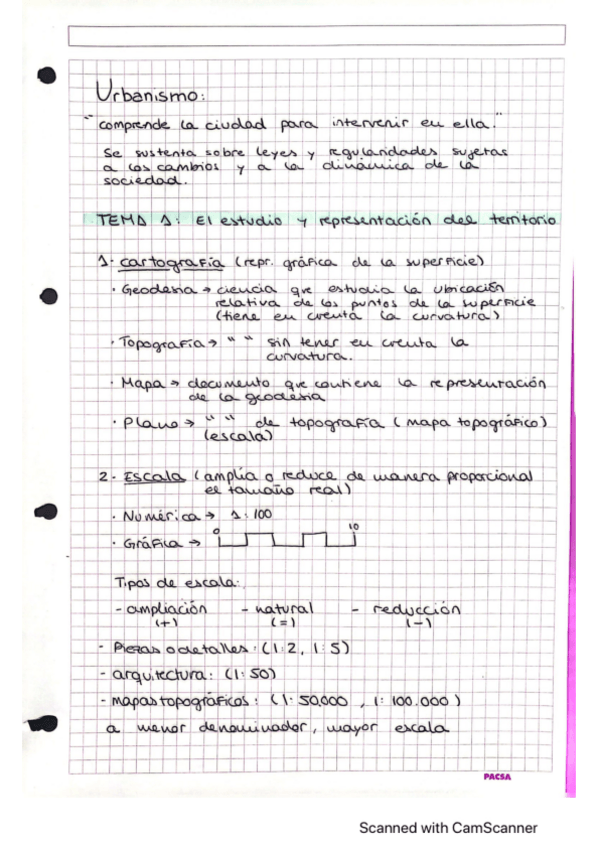 Urbanismo:
"comprende la ciudad para intervenir en ella."
Se sustenta sobre leyes y regularidades sujetas
a los cambios y a la dinámica de la
sociedad.
TEMA 1: El estudio y representación del territorio
1- cartografía (repr. gráfica de la superficie)
· Geodesia → ciencia que estudia la ubicación
relativa de los puntos de la superficie
(tiene en cuenta la curvatura)
· Topografía → " " sin tener en cuenta la
curvatura.
· Mapa → documento que contiene la representación
de la geodesia
· Plano → " " de topografía (mapa topográfico)
(escala)
2- Escala (amplía o reduce de manera proporcional
el tamaño real)
· Numérica → 1:100
· Gráfica → 0 10
Tipos de escala:
- ampliación - natural - reducción
(+) (=) (-)
- Piezas o detalles: (1:2, 1:5)
- arquitectura: (1:50)
- mapas topográficos: (1:50.000, 1:100.000)
a menor denominador, mayor escala
PACSA
Scanned with CamScanner